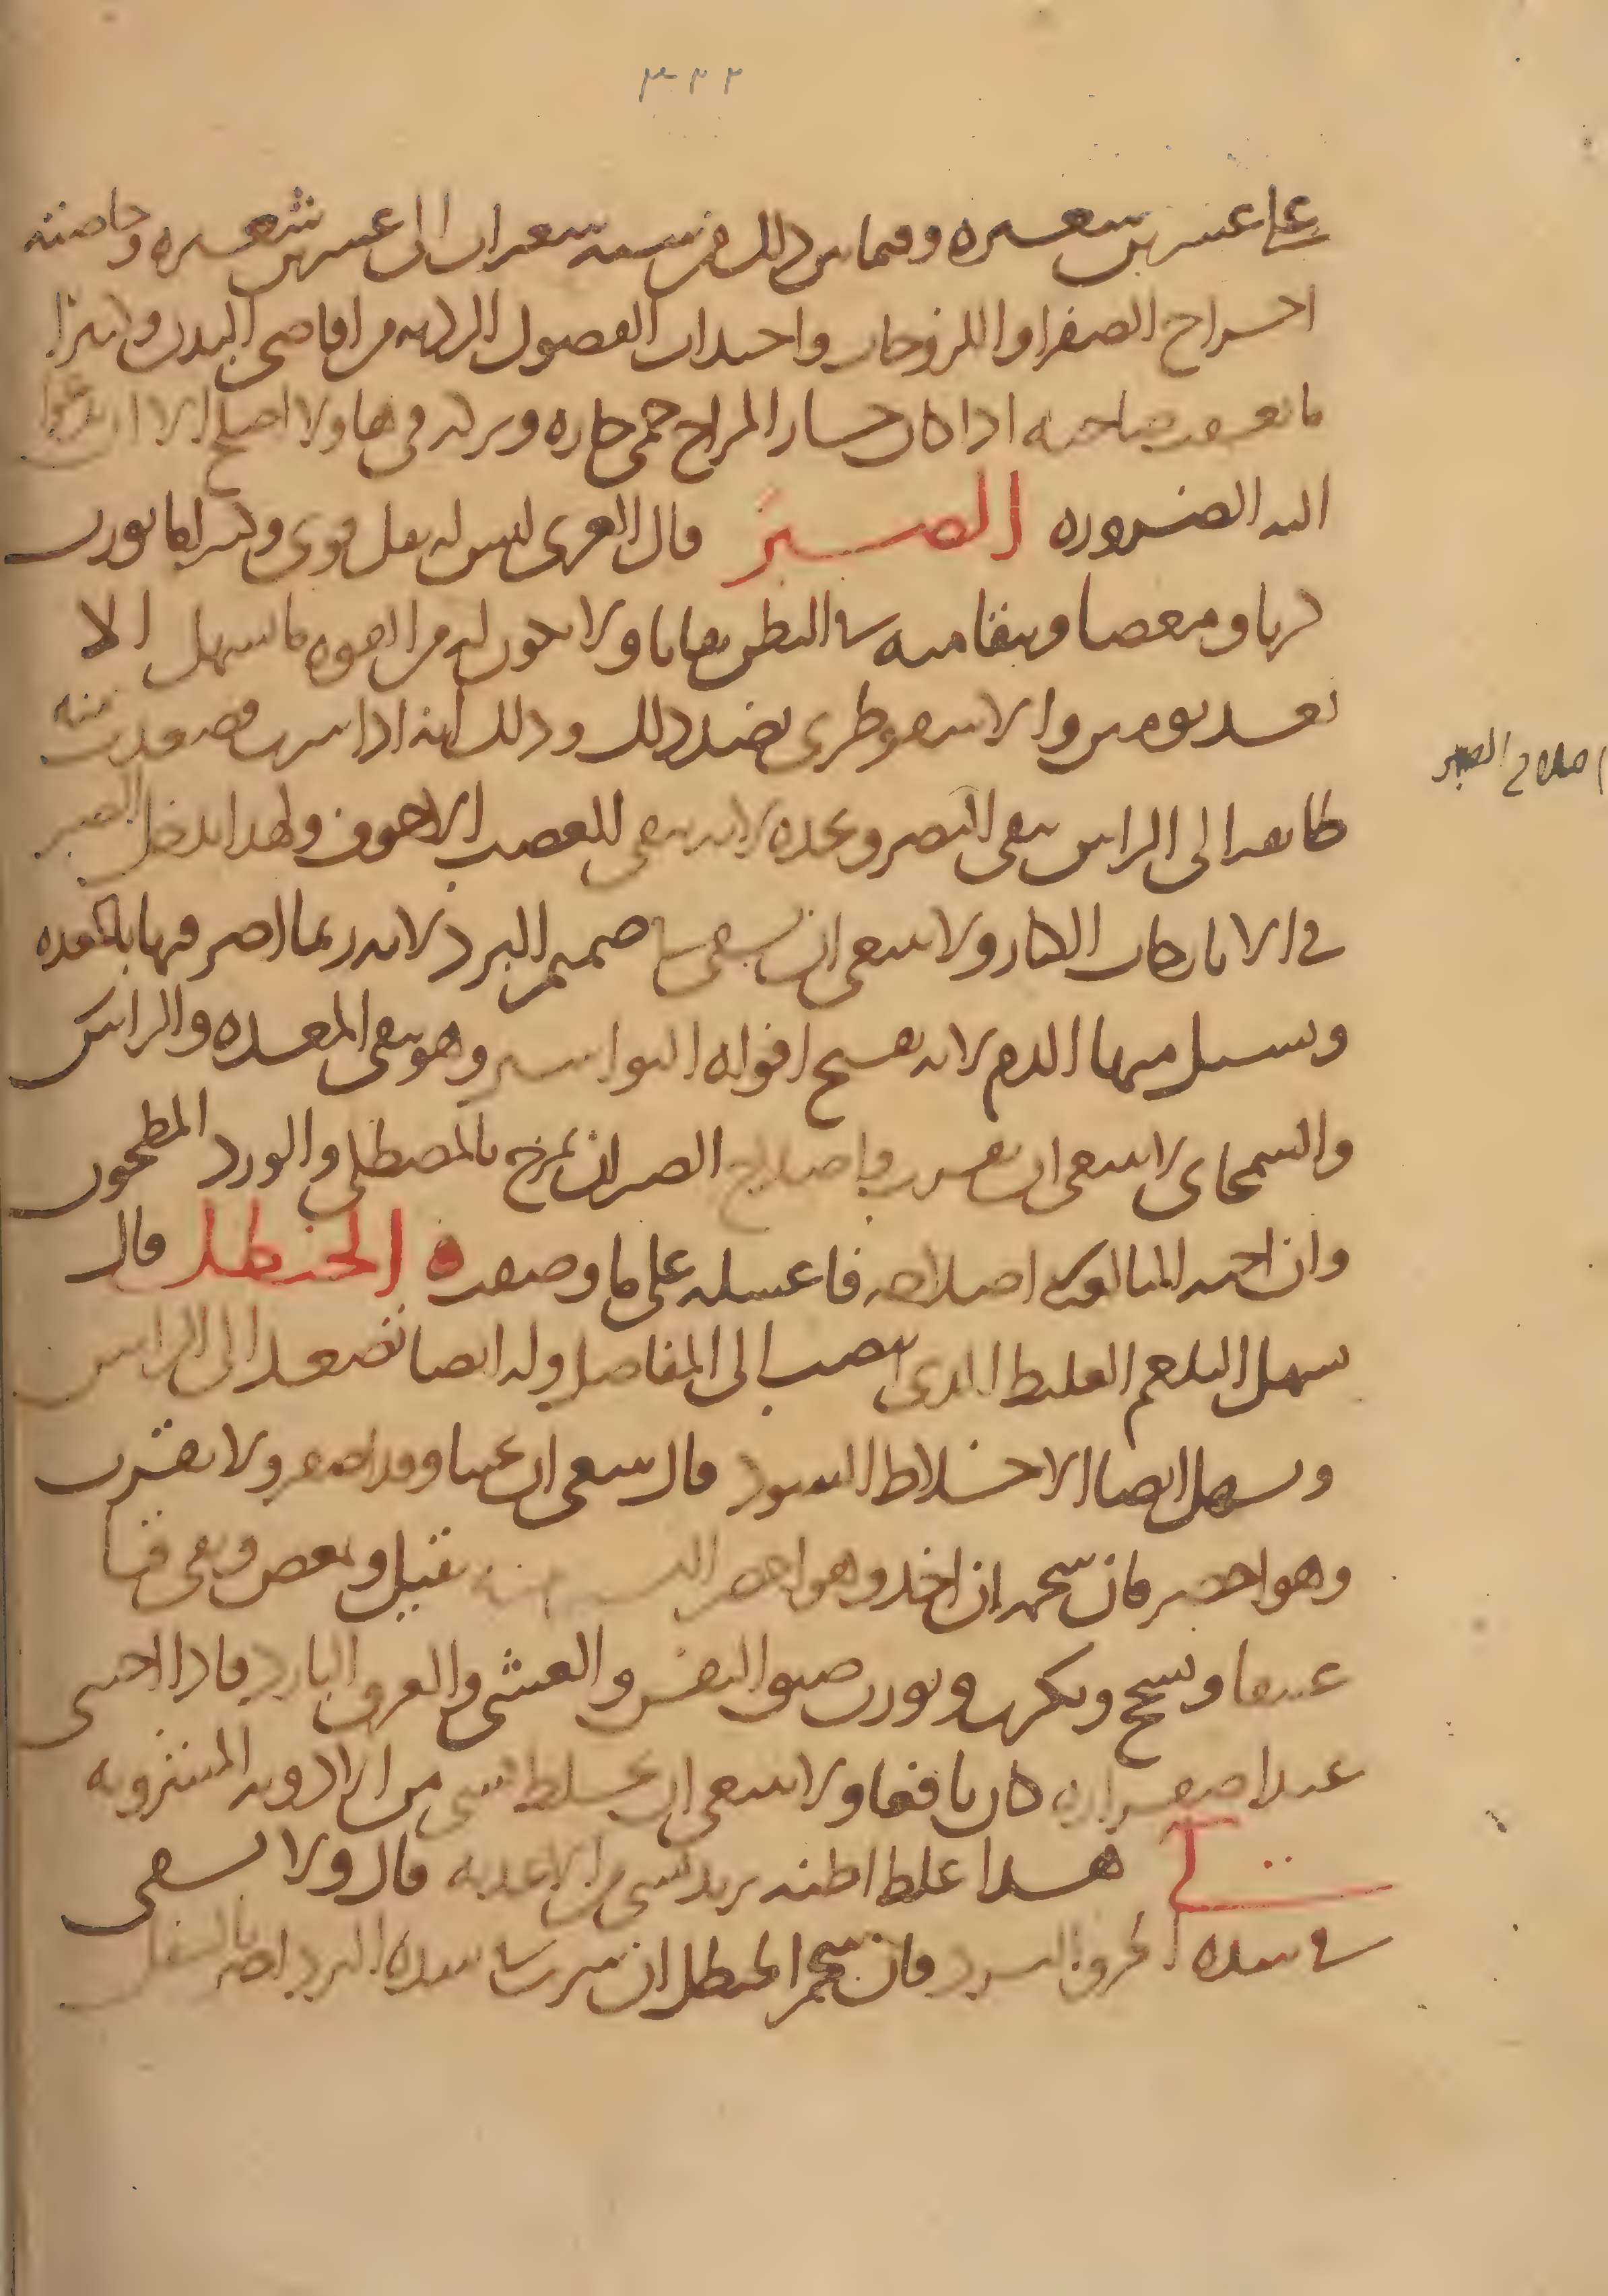 ٣٢٢
على عشرين شعيره وفيما بين ذلك من ستة شعيرات الى عشرين شعيره وخاصته
اخراج الصفرا واللزوجات واجتذاب الفضول الرديه من اقاصي البدن وكثيرا
ما صاحبه اذا كان حار المزاج حمى حاره وتركه في ها ولا اصلح الا ان تدعوا
اليه الضروره الصبر قال العربي ليس له فعل قوي وكثيرا ما يورث
كربا ومغصا ويبقا منه في البطن بقايا ولا يكون له من القوه ما يسهل الا
بعد يومين والاسقوطري بضد ذلك وذلك انه اذا شرب صعدت منه
طائفه الى الراس ينقي البصر ويحده لانه ينقي العصب الاجوف ولهذا يدخل الصبر
في الايارجات الكبار ولا ينبغي ان يسقى في صميم البرد لانه ربما اضر فيها بالمعده
وسيل منها الدم لانه يفتح افواه البواسير وهو ينقي المعده والراس
والسمجاني لا ينبغي ان يقرب واصلاح الصبر ان يمزج بالمصطكي والورد المطحون
وان احببت المبالغه في اصلاحه فاغسله على ما وصفت الحنظل قال
يسهل البلغم الغليظ الذي ينصب الى المفاصل وله ايضا تصعد الى الراس
ويسهل ايضا الاخلاط السود قال ينبغي ان يجتبا وقد اصفر ولا يقرب
وهو اخضر فان شحمه ان اخذ وهو اخضر يقتل ويمغص ويقي قيا
عنيفا ويسحج ويكرب ويورث ضيق النفس والغشي والعرق البارد فاذا اجتني
عند اصفراره كان نافعا ولا ينبغي ان يخلط بشي من الادويه المنتزويه
لي هذا غلط اظنه يريد بشي من الاغذيه قال ولا يسقى
في شده الحر والبرد فان شحم الحنظل ان شرب في شده البرد اضر بالسفل
اصلاح الصبر